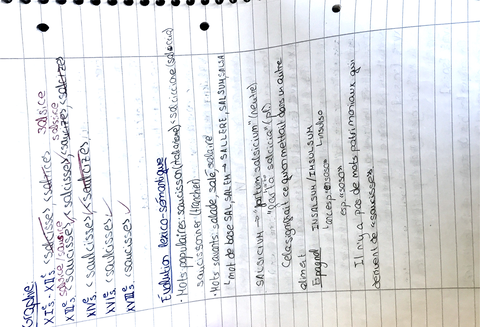 Graphie
XIe - XIIe <salcisse> <salcizes> salsice
XIIIe salcice / sausice <saucisse>, <salcisse>, <saucizes>, <salcizes>
XIVe s. <saulcisse>, <saulcizes>
XVIe s. <saulcisse>
XVIIIe s. <saucisse>
Évolution lexico-sémantique
• Mots populaires: saucisson (italianisme) <salciccione (salsiccia)
saucissonner (trancher)
• Mots savants: salade, salé, salaire
↳ mot de base SAL, SALEM → SALLERE, SALSUM, SALSA
SALSICIUM → "salsicium" (neutre)
Cela désignait ce qu'on mettait dans un autre
aliment
Espagnol INSALSUM / INSULSUM
esp "soso"
Il n'y a pas de mots patrimoniaux qui
dérivent de "saucisse"